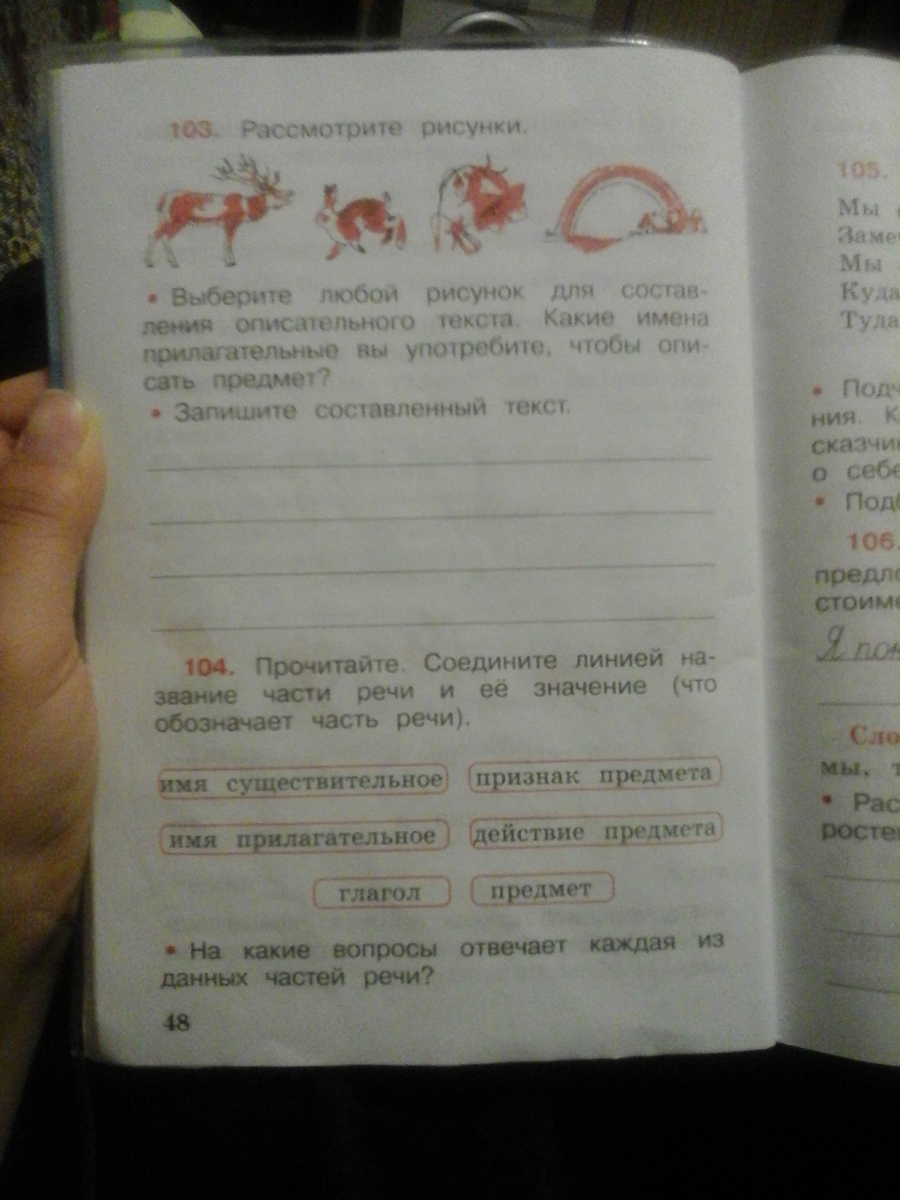 103. Рассмотрите рисунки.
• Выберите любой рисунок для состав-
ления описательного текста. Какие имена
прилагательные вы употребите, чтобы опи-
сать предмет?
• Запишите составленный текст.
104. Прочитайте. Соедините линией на-
звание части речи и её значение (что
обозначает часть речи).
имя существительное признак предмета
имя прилагательное действие предмета
глагол предмет
• На какие вопросы отвечает каждая из
данных частей речи?
48
105.
Мы
Заме
Мы
Куда
Туда
• Подч
ния. К
сказчи
о себе
• Подб
106.
предло
стоиме
Я пом
Сло
мы, т
• Рас
росте